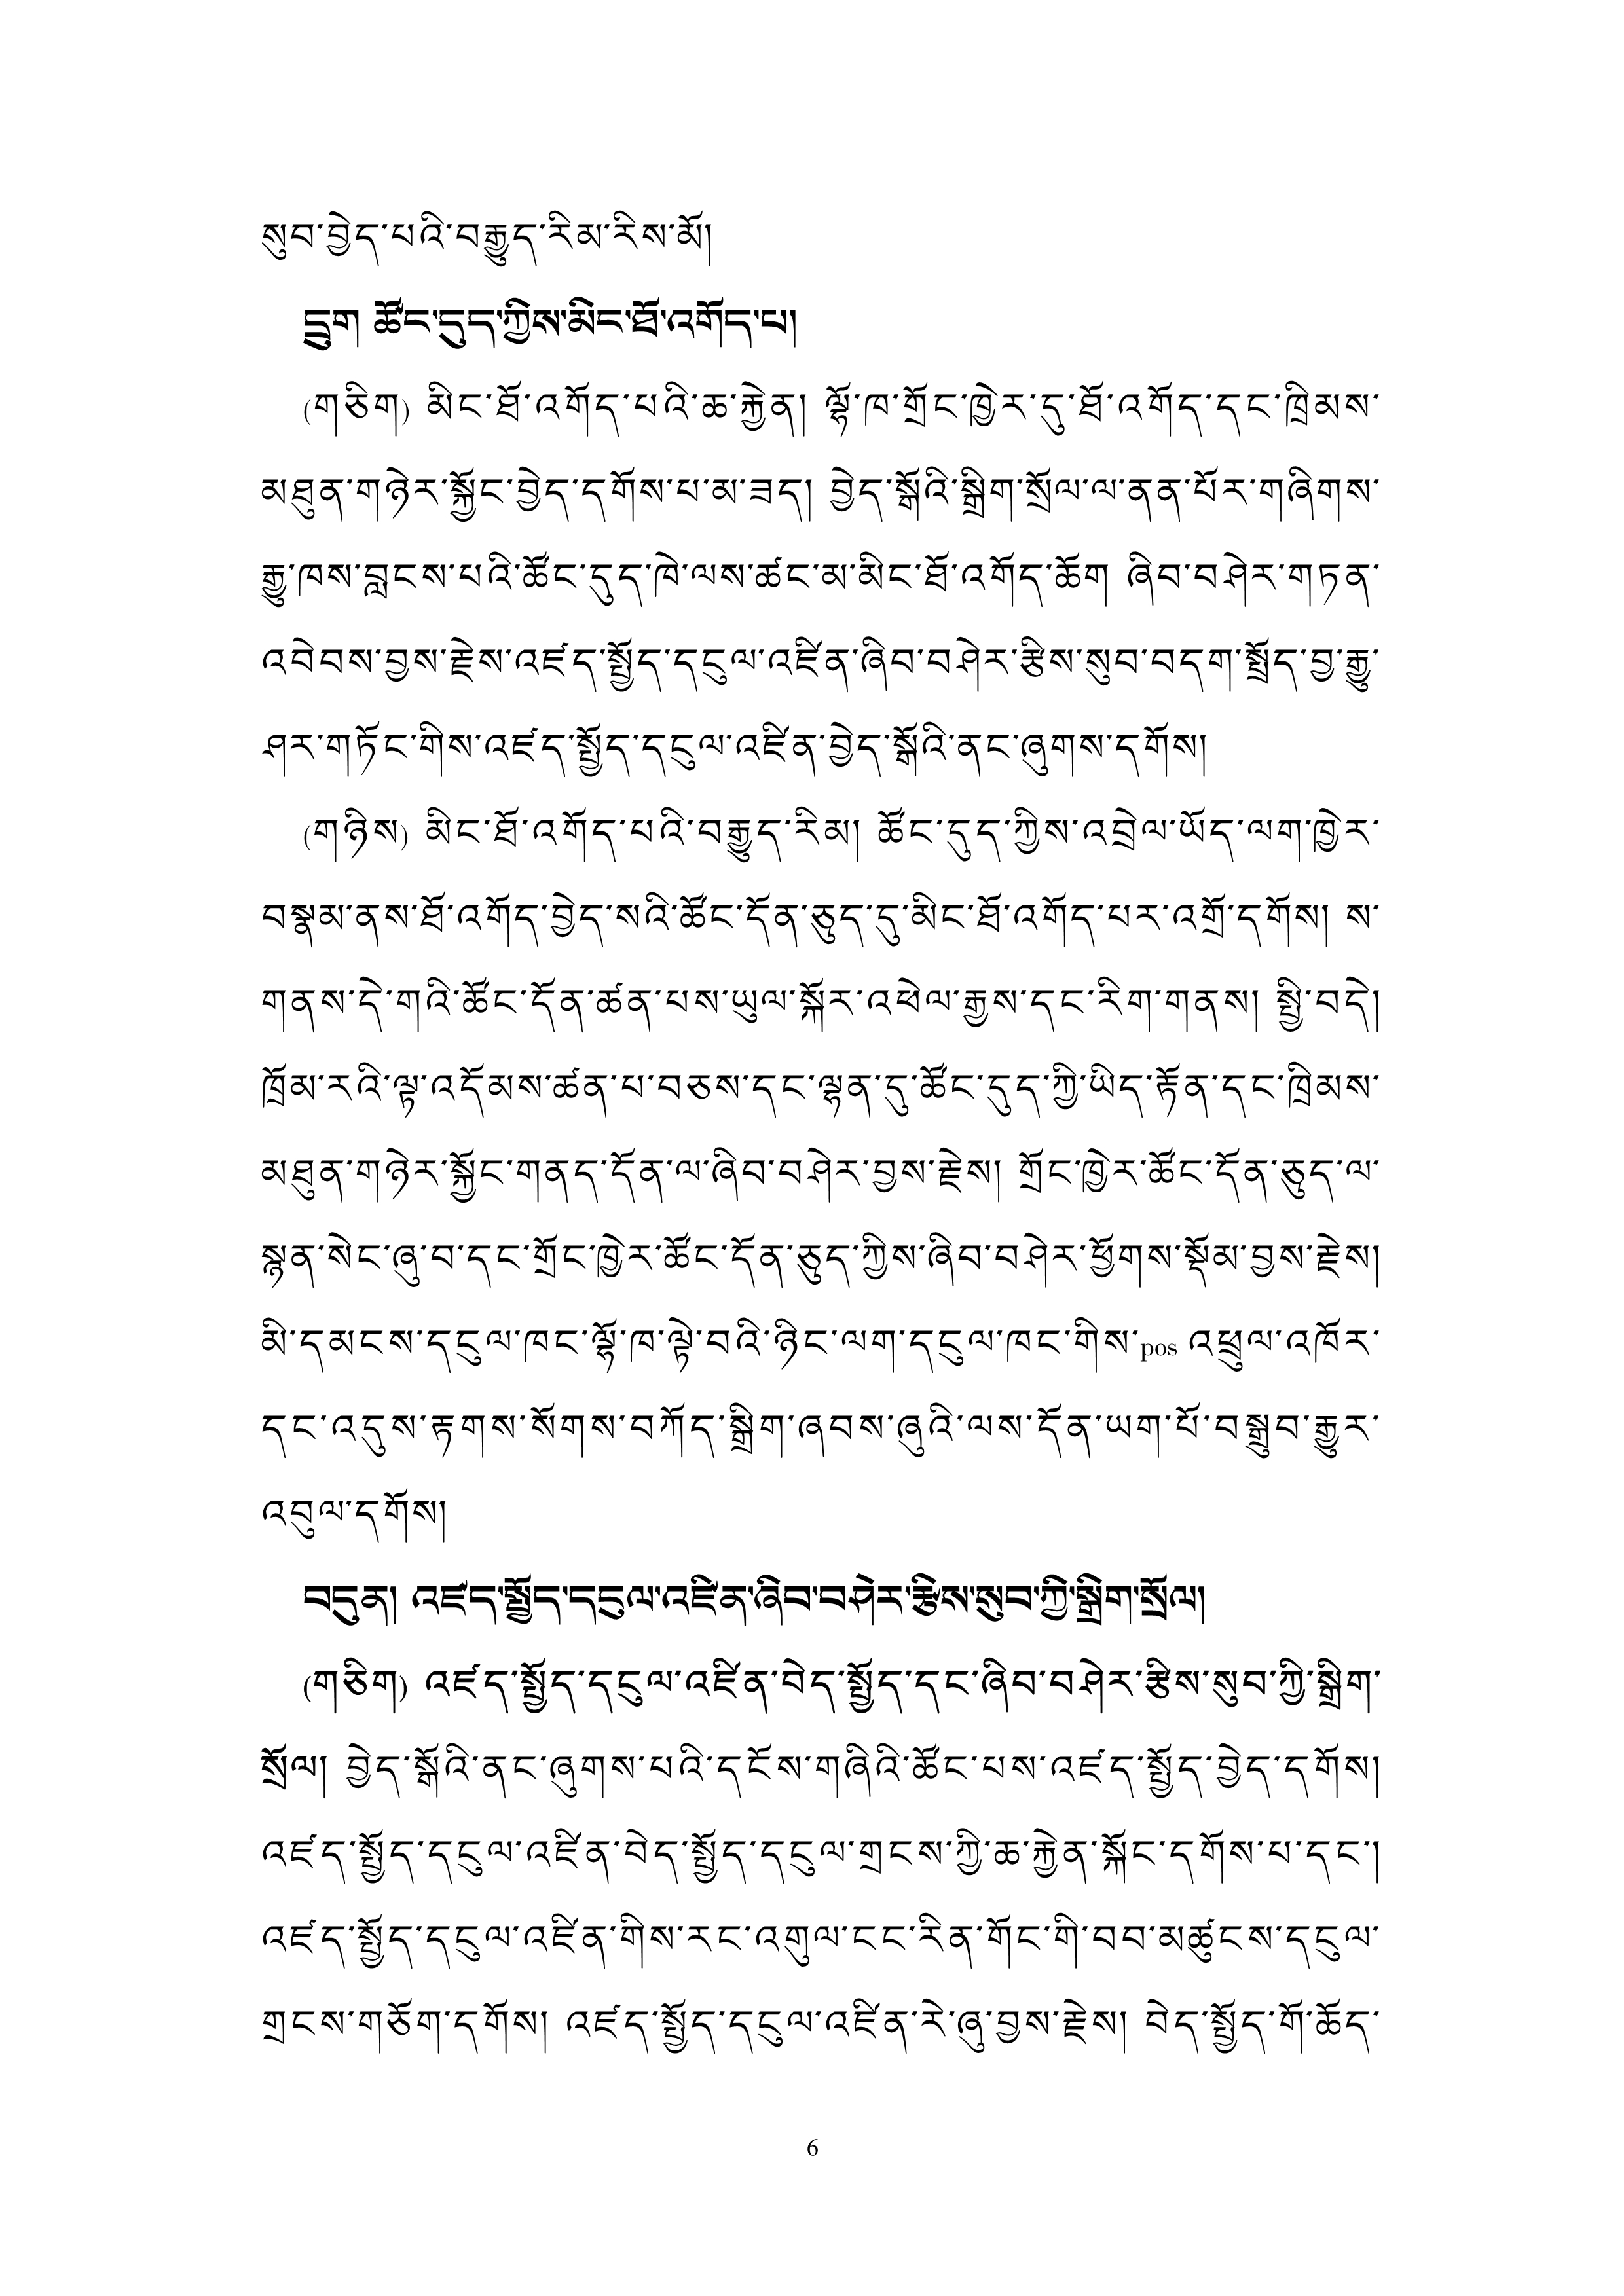 སུབ་བྱེད་པའི་བརྒྱུད་རིམ་རིས་མོ།
དྲུག ཚོང་དུད་ཀྱིས་མིང་ཐོ་འགོད་པ།
(གཅིག) མིང་ཐོ་འགོད་པའི་ཆ་རྐྱེན། ལྷོ་ཁ་གྲོང་ཁྱེར་དུ་ཐོ་འགོད་དང་ཁྲིམས་
མཐུན་གཉེར་སྐྱོང་བྱེད་དགོས་པ་མ་ཟད། བྱེད་སྒོའི་སྒྲིག་སྲོལ་ལ་ནན་པོར་གཞིགས་
རྒྱུ་ཁས་བླངས་པའི་ཚོང་དུད་ཁེ་ལས་ཚང་མ་མིང་ཐོ་འགོད་ཆོག ཞིབ་བཤེར་གཏན་
འབེབས་བྱས་རྗེས་འཛད་སྤྱོད་དངུལ་འཛིན་ཞིབ་བཤེར་རྩིས་སུབ་བདག་སྤྲོད་བྱ་རྒྱུ་
ཤར་གཏོང་གིས་འཛད་སྤྱོད་དངུལ་འཛིན་བྱེད་སྒོའི་ནང་ཞུགས་དགོས།
(གཉིས) མིང་ཐོ་འགོད་པའི་བརྒྱུད་རིམ། ཚོང་དུད་ཀྱིས་འབྲེལ་ཡོད་ལག་ཁྱེར་
བསྣམ་ནས་ཐོ་འགོད་བྱེད་སའི་ཚོང་དོན་ཅུད་དུ་མིང་ཐོ་འགོད་པར་འགྲོ་དགོས། ས་
གནས་དེ་གའི་ཚོང་དོན་ཚན་པས་ཡུལ་སྐོར་འཕེལ་རྒྱས་དང་རིག་གནས། སྤྱི་བདེ།
ཁྲོམ་རའི་ལྟ་འདོམས་ཚན་པ་བཅས་དང་ལྷན་དུ་ཚོང་དུད་ཀྱི་ཡིད་རྟོན་དང་ཁྲིམས་
མཐུན་གཉེར་སྐྱོང་གནད་དོན་ལ་ཞིབ་བཤེར་བྱས་རྗེས། གྲོང་ཁྱེར་ཚོང་དོན་ཅུད་ལ་
སྙན་སེང་ཞུ་བ་དང་གྲོང་ཁྱེར་ཚོང་དོན་ཅུད་ཀྱིས་ཞིབ་བཤེར་ཕྱོགས་སྡོམ་བྱས་རྗེས།
མི་དམངས་དངུལ་ཁང་ལྷོ་ཁ་ལྟེ་བའི་ཉིང་ལག་དངུལ་ཁང་གིས་pos འཕྲུལ་འཁོར་
དང་འདུས་རྟགས་སོགས་བཀོད་སྒྲིག་ཞབས་ཞུའི་ལས་དོན་ཡག་པོ་བསྒྲུབ་རྒྱུར་
འབུལ་དགོས།
བདུན། འཛད་སྤྱོད་དངུལ་འཛིན་ཞིབ་བཤེར་རྩིས་སུབ་ཀྱི་སྒྲིག་སྲོལ།
(གཅིག) འཛད་སྤྱོད་དངུལ་འཛིན་བེད་སྤྱོད་དང་ཞིབ་བཤེར་རྩིས་སུབ་ཀྱི་སྒྲིག་
སྲོལ། བྱེད་སྒོའི་ནང་ཞུགས་པའི་དངོས་གཞིའི་ཚོང་པས་འཛད་སྤྱོད་བྱེད་དགོས།
འཛད་སྤྱོད་དངུལ་འཛིན་བེད་སྤྱོད་དངུལ་གྲངས་ཀྱི་ཆ་རྐྱེན་སྐོང་དགོས་པ་དང་།
འཛད་སྤྱོད་དངུལ་འཛིན་གིས་རང་འགུལ་ངང་རིན་གོང་གི་བབ་མཚུངས་དངུལ་
གྲངས་གཅོག་དགོས། འཛད་སྤྱོད་དངུལ་འཛིན་རེ་ཞུ་བྱས་རྗེས། བེད་སྤྱོད་གོ་ཆོད་
6